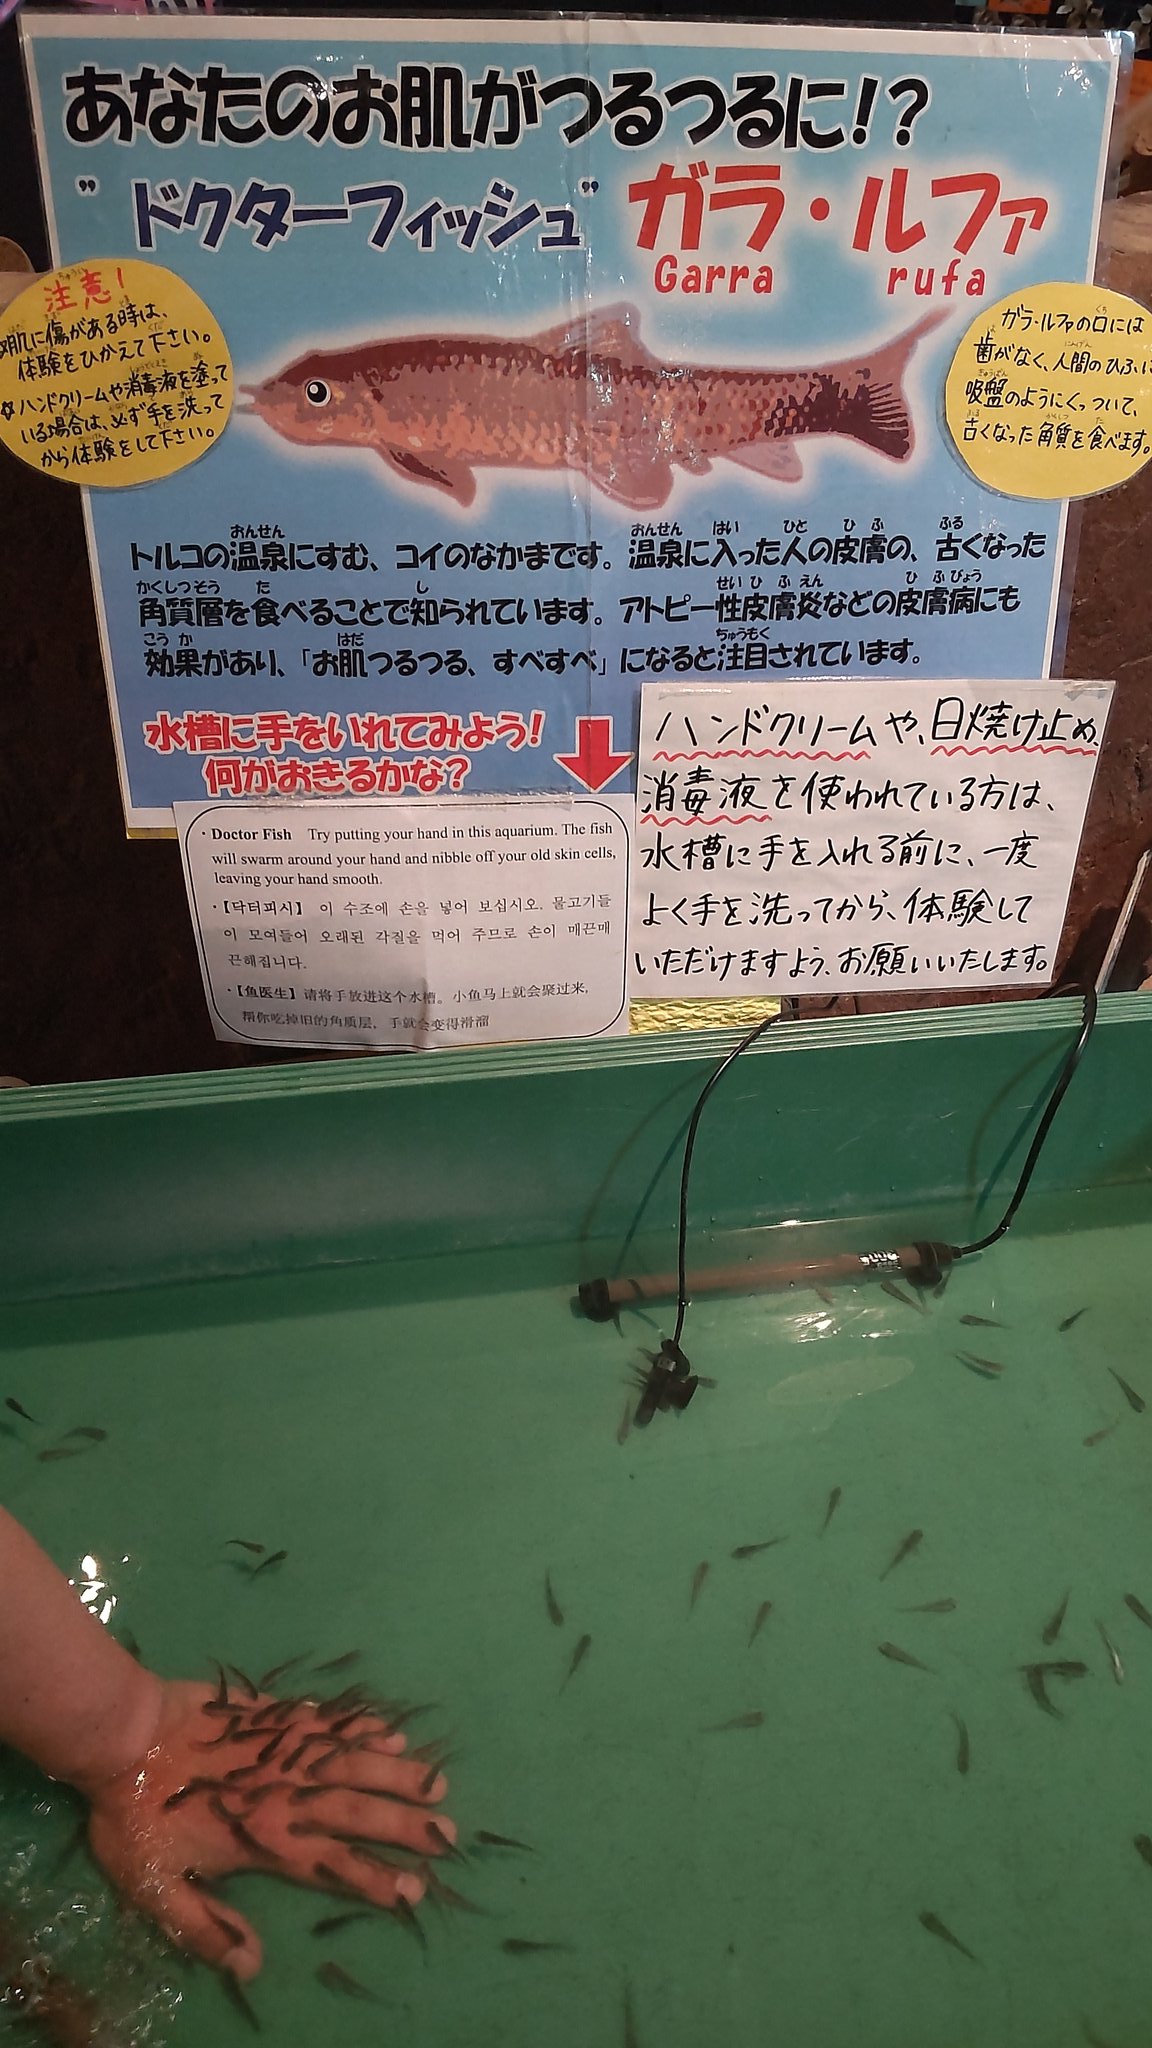 あなたのお肌がつるつるに！？
”ドクターフィッシュ” ガラ・ルファ
Garra rufa
注意！
☆肌に傷がある時は、
体験をひかえて下さい。
☆ハンドクリームや消毒液を塗って
いる場合は、必ず手を洗って
から体験をして下さい。
ガラ・ルファの口には
歯がなく、人間のひふに
吸盤のようにくっついて、
古くなった角質を食べます。
トルコの温泉にすむ、コイのなかまです。温泉に入った人の皮膚の、古くなった
角質層を食べることで知られています。アトピー性皮膚炎などの皮膚病にも
効果があり、「お肌つるつる、すべすべ」になると注目されています。
水槽に手をいれてみよう！
何がおきるかな？
・Doctor Fish Try putting your hand in this aquarium. The fish
will swarm around your hand and nibble off your old skin cells,
leaving your hand smooth.
・【닥터피시】 이 수조에 손을 넣어 보십시오. 물고기들
이 모여들어 오래된 각질을 먹어 주므로 손이 매끈매
끈해집니다.
・【鱼医生】请将手放进这个水槽。小鱼马上就会聚过来，
帮你吃掉旧的角质层，手就会变得滑溜
ハンドクリームや、日焼け止め、
消毒液を使われている方は、
水槽に手を入れる前に、一度
よく手を洗ってから、体験して
いただけますよう、お願いいたします。